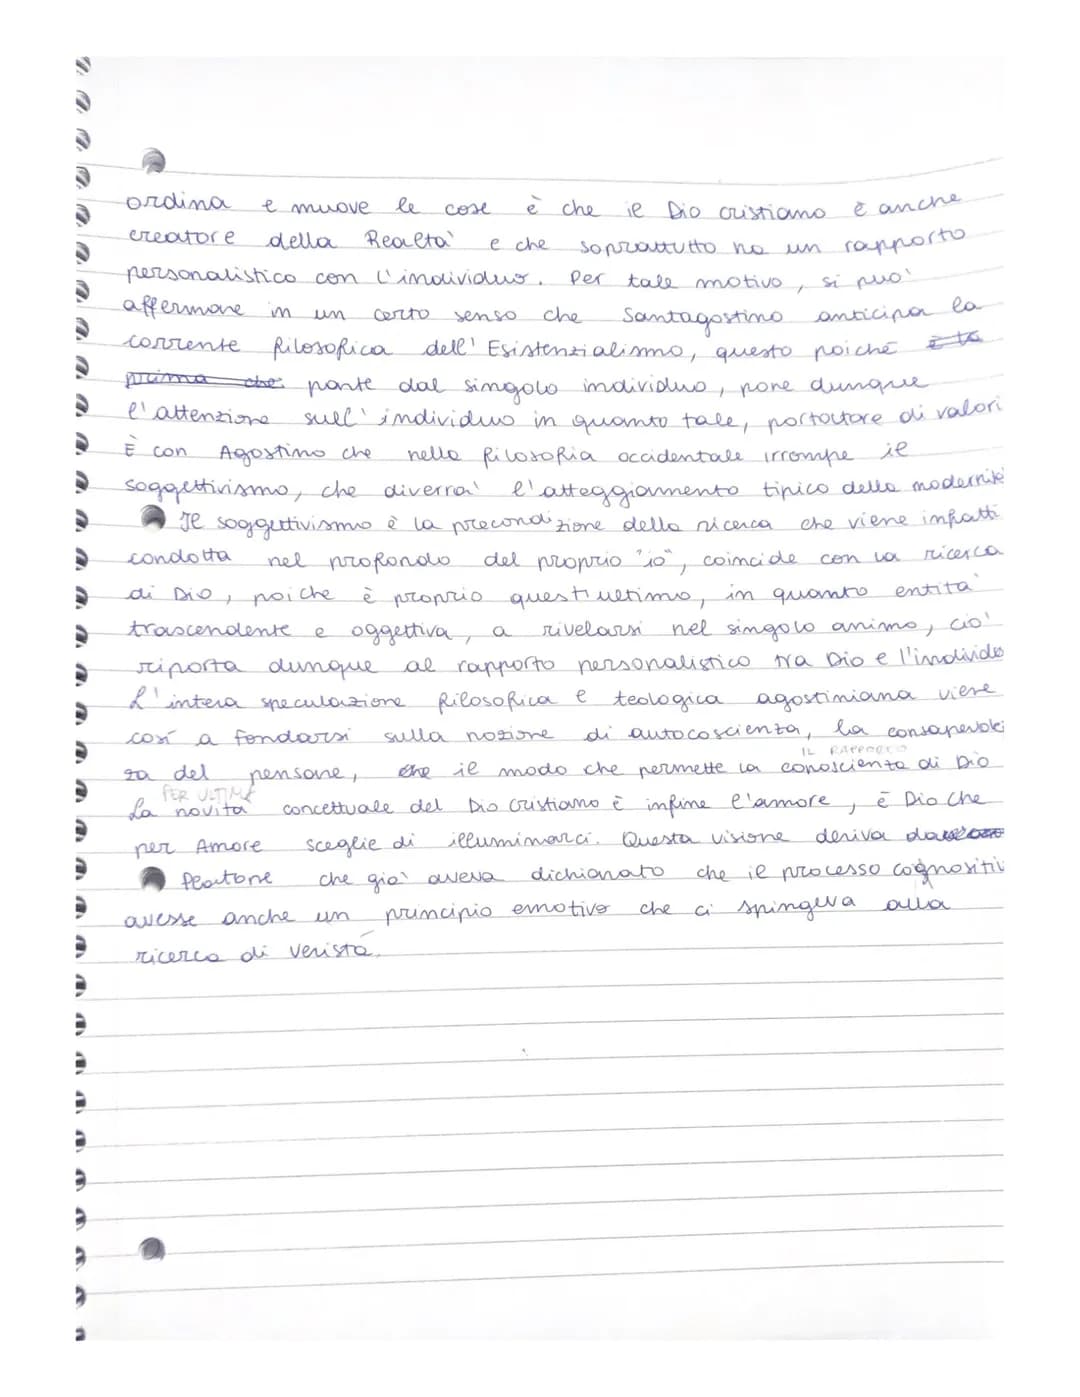 ordina e muove le cose è che il Dio cristiano è anche
creatore della Realtà e che soprattutto ha un rapporto
personalistico con l'individuo. Per tale motivo, si può
affermare in un certo senso che Santagostino anticipa la
corrente filosofica dell'Esistenzialismo, questo poiché è la
prima che parte dal singolo individuo, pone dunque
l'attenzione sull'individuo in quanto tale, portatore di valori
È con Agostino che nella filosofia occidentale irrompe il
soggettivismo, che diverrà l'atteggiamento tipico della modernità
Il soggettivismo è la precondizione della ricerca che viene infatti
condotta nel profondo del proprio "io", coincide con la ricerca
di Dio, poiche è proprio quest'ultimo, in quanto entità
trascendente e oggettiva, a rivelarsi nel singolo animo, ciò
riporta dunque al rapporto personalistico tra Dio e l'individo
L'intera speculazione filosofica e teologica agostiniana viene
così a fondarsi sulla nozione di autocoscienza, la consapevolez
IL RAPPORTO
za del pensare, che il modo che permette la conoscienza di Dio
PER ULTIMA
La novità concettuale del Dio Cristiano è infine l'amore, è Dio che
per Amore sceglie di illuminarci. Questa visione deriva da
Platone che già aveva dichianato che il processo cognositiv
avesse anche un principio emotivo che ci spingeva alla
ricerca di veristà.